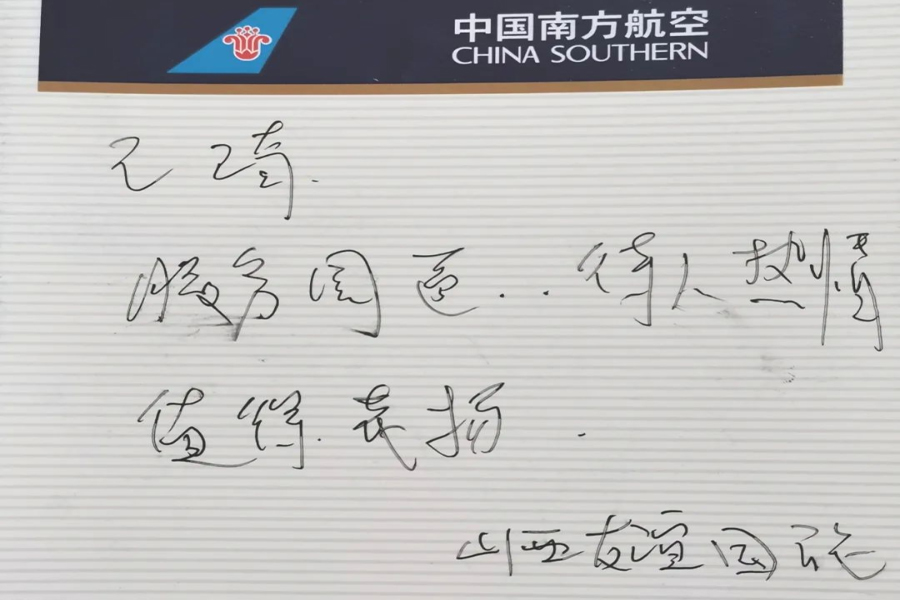 中国南方航空
CHINA SOUTHERN
琦.
服务周 .. 待人热情
值得.表扬.
山西友谊国旅